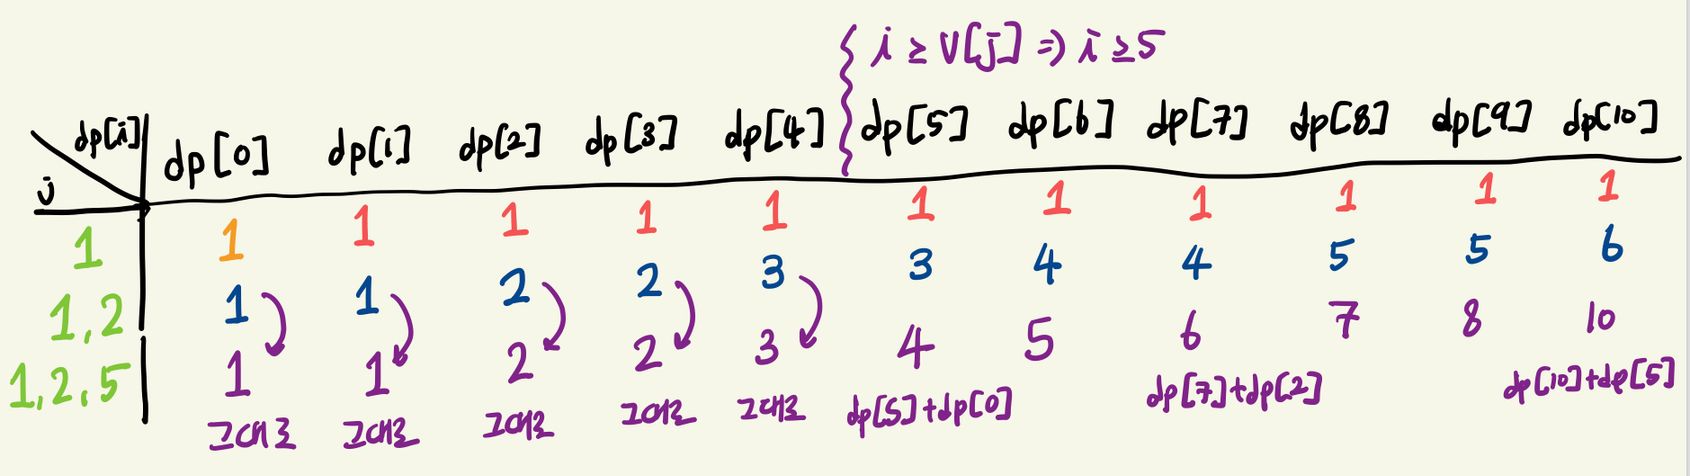 i ≥ V[j] => i ≥ 5
dp[i] dp[0] dp[1] dp[2] dp[3] dp[4] dp[5] dp[6] dp[7] dp[8] dp[9] dp[10]
j
1 1 1 1 1 1 1 1 1 1 1 1
1,2 1 1 2 2 3 3 4 4 5 5 6
1,2,5 1 1 2 2 3 4 5 6 7 8 10
그대로 그대로 그대로 그대로 그대로 dp[5]+dp[0] dp[7]+dp[2] dp[10]+dp[5]